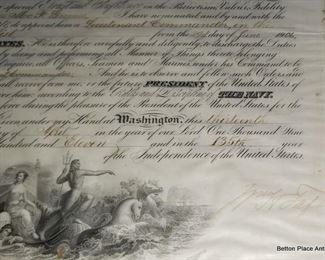 special Trust and Confidence in the Patriotism, Valour, Fidelity
I have nominated and by and with the
do appoint him a Lieutenant Commander in the
from the day of June 190
ATES. He is therefore carefully and diligently to discharge the Duties
by doing and performing all Manner of Things thereto belonging.
all Officers, Seamen and Marines under his Command to be
And he is to observe and follow such Orders and
receive from me, or the future PRESIDENT of the United States of
THE NAVY.
force during the pleasure of the President of the United States for the
Given under my Hand at Washington, this thirteenth
of April in the year of our Lord One Thousand Nine
Hundred and Eleven and in the 135th Year
of the Independence of the United States.
Betton Place Anti